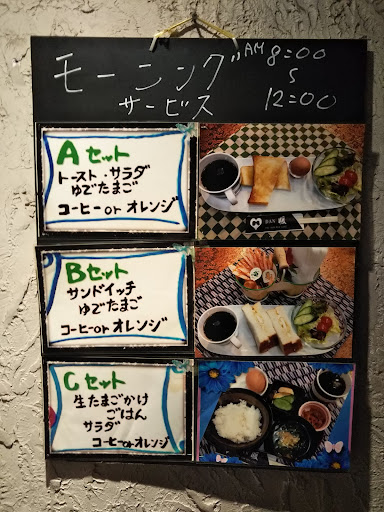 モーニング
サービス
AM 8=00
S
12=00
Aセット
トースト・サラダ
ゆでたまご
コーヒーorオレンジ
Bセット
サンドイッチ
ゆでたまご
コーヒーorオレンジ
Cセット
生たまごかけ
ごはん
サラダ
コーヒーorオレンジ